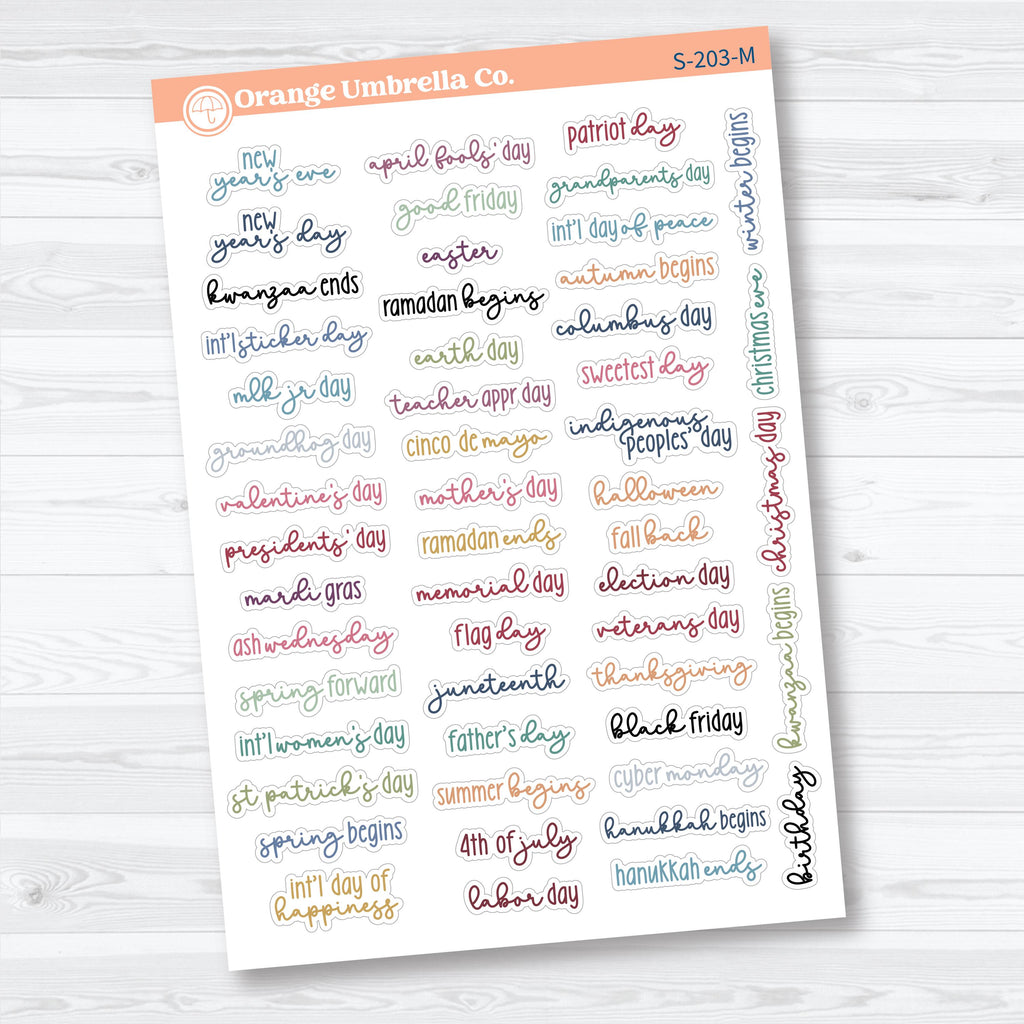 Orange Umbrella Co.
S-203-M
new
year's eve
new
year's day
kwanzaa ends
int'l sticker day
mlk jr day
groundhog day
valentine's day
presidents' day
mardi gras
ash wednesday
spring forward
int'l women's day
st patrick's day
spring begins
int'l day of
happiness
april fools' day
good friday
easter
ramadan begins
earth day
teacher appr day
cinco de mayo
mother's day
ramadan ends
memorial day
flag day
juneteenth
father's day
summer begins
4th of july
labor day
patriot day
grandparents day
int'l day of peace
autumn begins
columbus day
sweetest day
indigenous
peoples' day
halloween
fall back
election day
veterans day
thanksgiving
black friday
cyber monday
hanukkah begins
hanukkah ends
winter begins
christmas eve
christmas day
kwanzaa begins
birthday